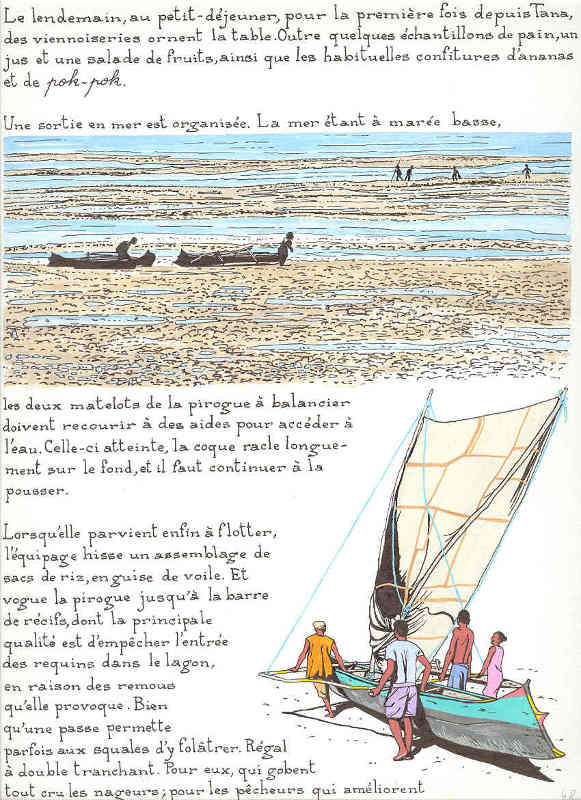 Le lendemain, au petit-déjeuner, pour la première fois depuis Tana,
des viennoiseries ornent la table. Outre quelques échantillons de pain, un
jus et une salade de fruits, ainsi que les habituelles confitures d'ananas
et de pok-pok.
Une sortie en mer est organisée. La mer étant à marée basse,
les deux matelots de la pirogue à balancier
doivent recourir à des aides pour accéder à
l'eau. Celle-ci atteinte, la coque racle longue-
ment sur le fond, et il faut continuer à la
pousser.
Lorsqu'elle parvient enfin à flotter,
l'équipage hisse un assemblage de
sacs de riz, en guise de voile. Et
vogue la pirogue jusqu'à la barre
de récifs, dont la principale
qualité est d'empêcher l'entrée
des requins dans le lagon,
en raison des remous
qu'elle provoque. Bien
qu'une passe permette
parfois aux squales d'y folâtrer. Régal
à double tranchant. Pour eux, qui gobent
tout cru les nageurs ; pour les pêcheurs qui améliorent